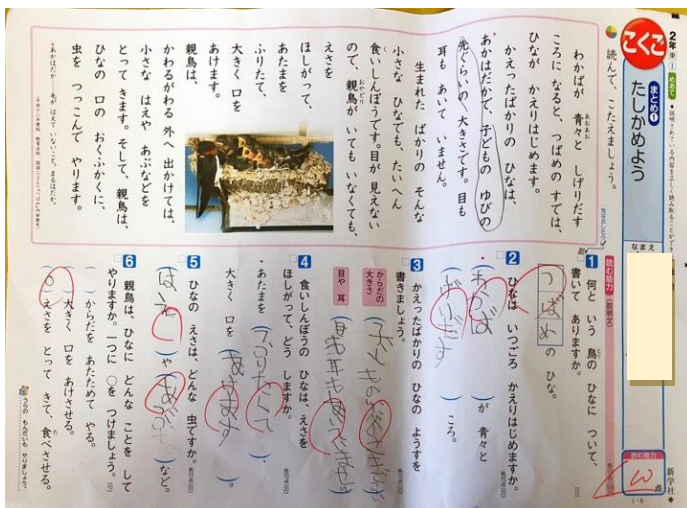 2年
東①
めあて
こくご
まとめ①
たしかめよう
なまえ
読む能力
点
新学社
読んで、こたえましょう。
わかばが 青々と しげりだす
ころに なると、つばめの すでは、
ひなが かえりはじめます。
かえったばかりの ひなは、
あかはだかで、子どもの ゆびの
先ぐらいの 大きさです。目も
耳も あいて いません。
生まれた ばかりの そんな
小さな ひなでも、たいへん
食いしんぼうです。目が 見えない
ので、親鳥が いても いなくても、
えさを
ほしがって、
あたまを
ふりたて、
大きく 口を
あけます。
親鳥は、
かわるがわる 外へ 出かけては、
小さな はえや あぶなどを
とって きます。そして、親鳥は、
ひなの 口の おくふかくに、
虫を つっこんで やります。
読む能力(説明文)
1 何と いう 鳥の ひなに ついて、
書いて ありますか。
つばめ の ひな。
2 ひなは いつごろ かえりはじめますか。
(わかば)が 青々と
(しげりだす)ころ。
3 かえったばかりの ひなの ようすを
書きましょう。
からだの大きさ
目や 耳
4 食いしんぼうの ひなは、えさを
ほしがって、どう しますか。
・あたまを(ふりたて)、
大きく 口を(あけます)。
5 ひなの えさは、どんな 虫ですか。
(はえ)や(あぶ)など。
6 親鳥は、ひなに どんな ことを して
やりますか。一つに ○を つけましょう。
( )からだを あたためて やる。
( )大きく 口を あけさせる。
(○)えさを とって きて、食べさせる。
うらの もんだいも やりましょう。